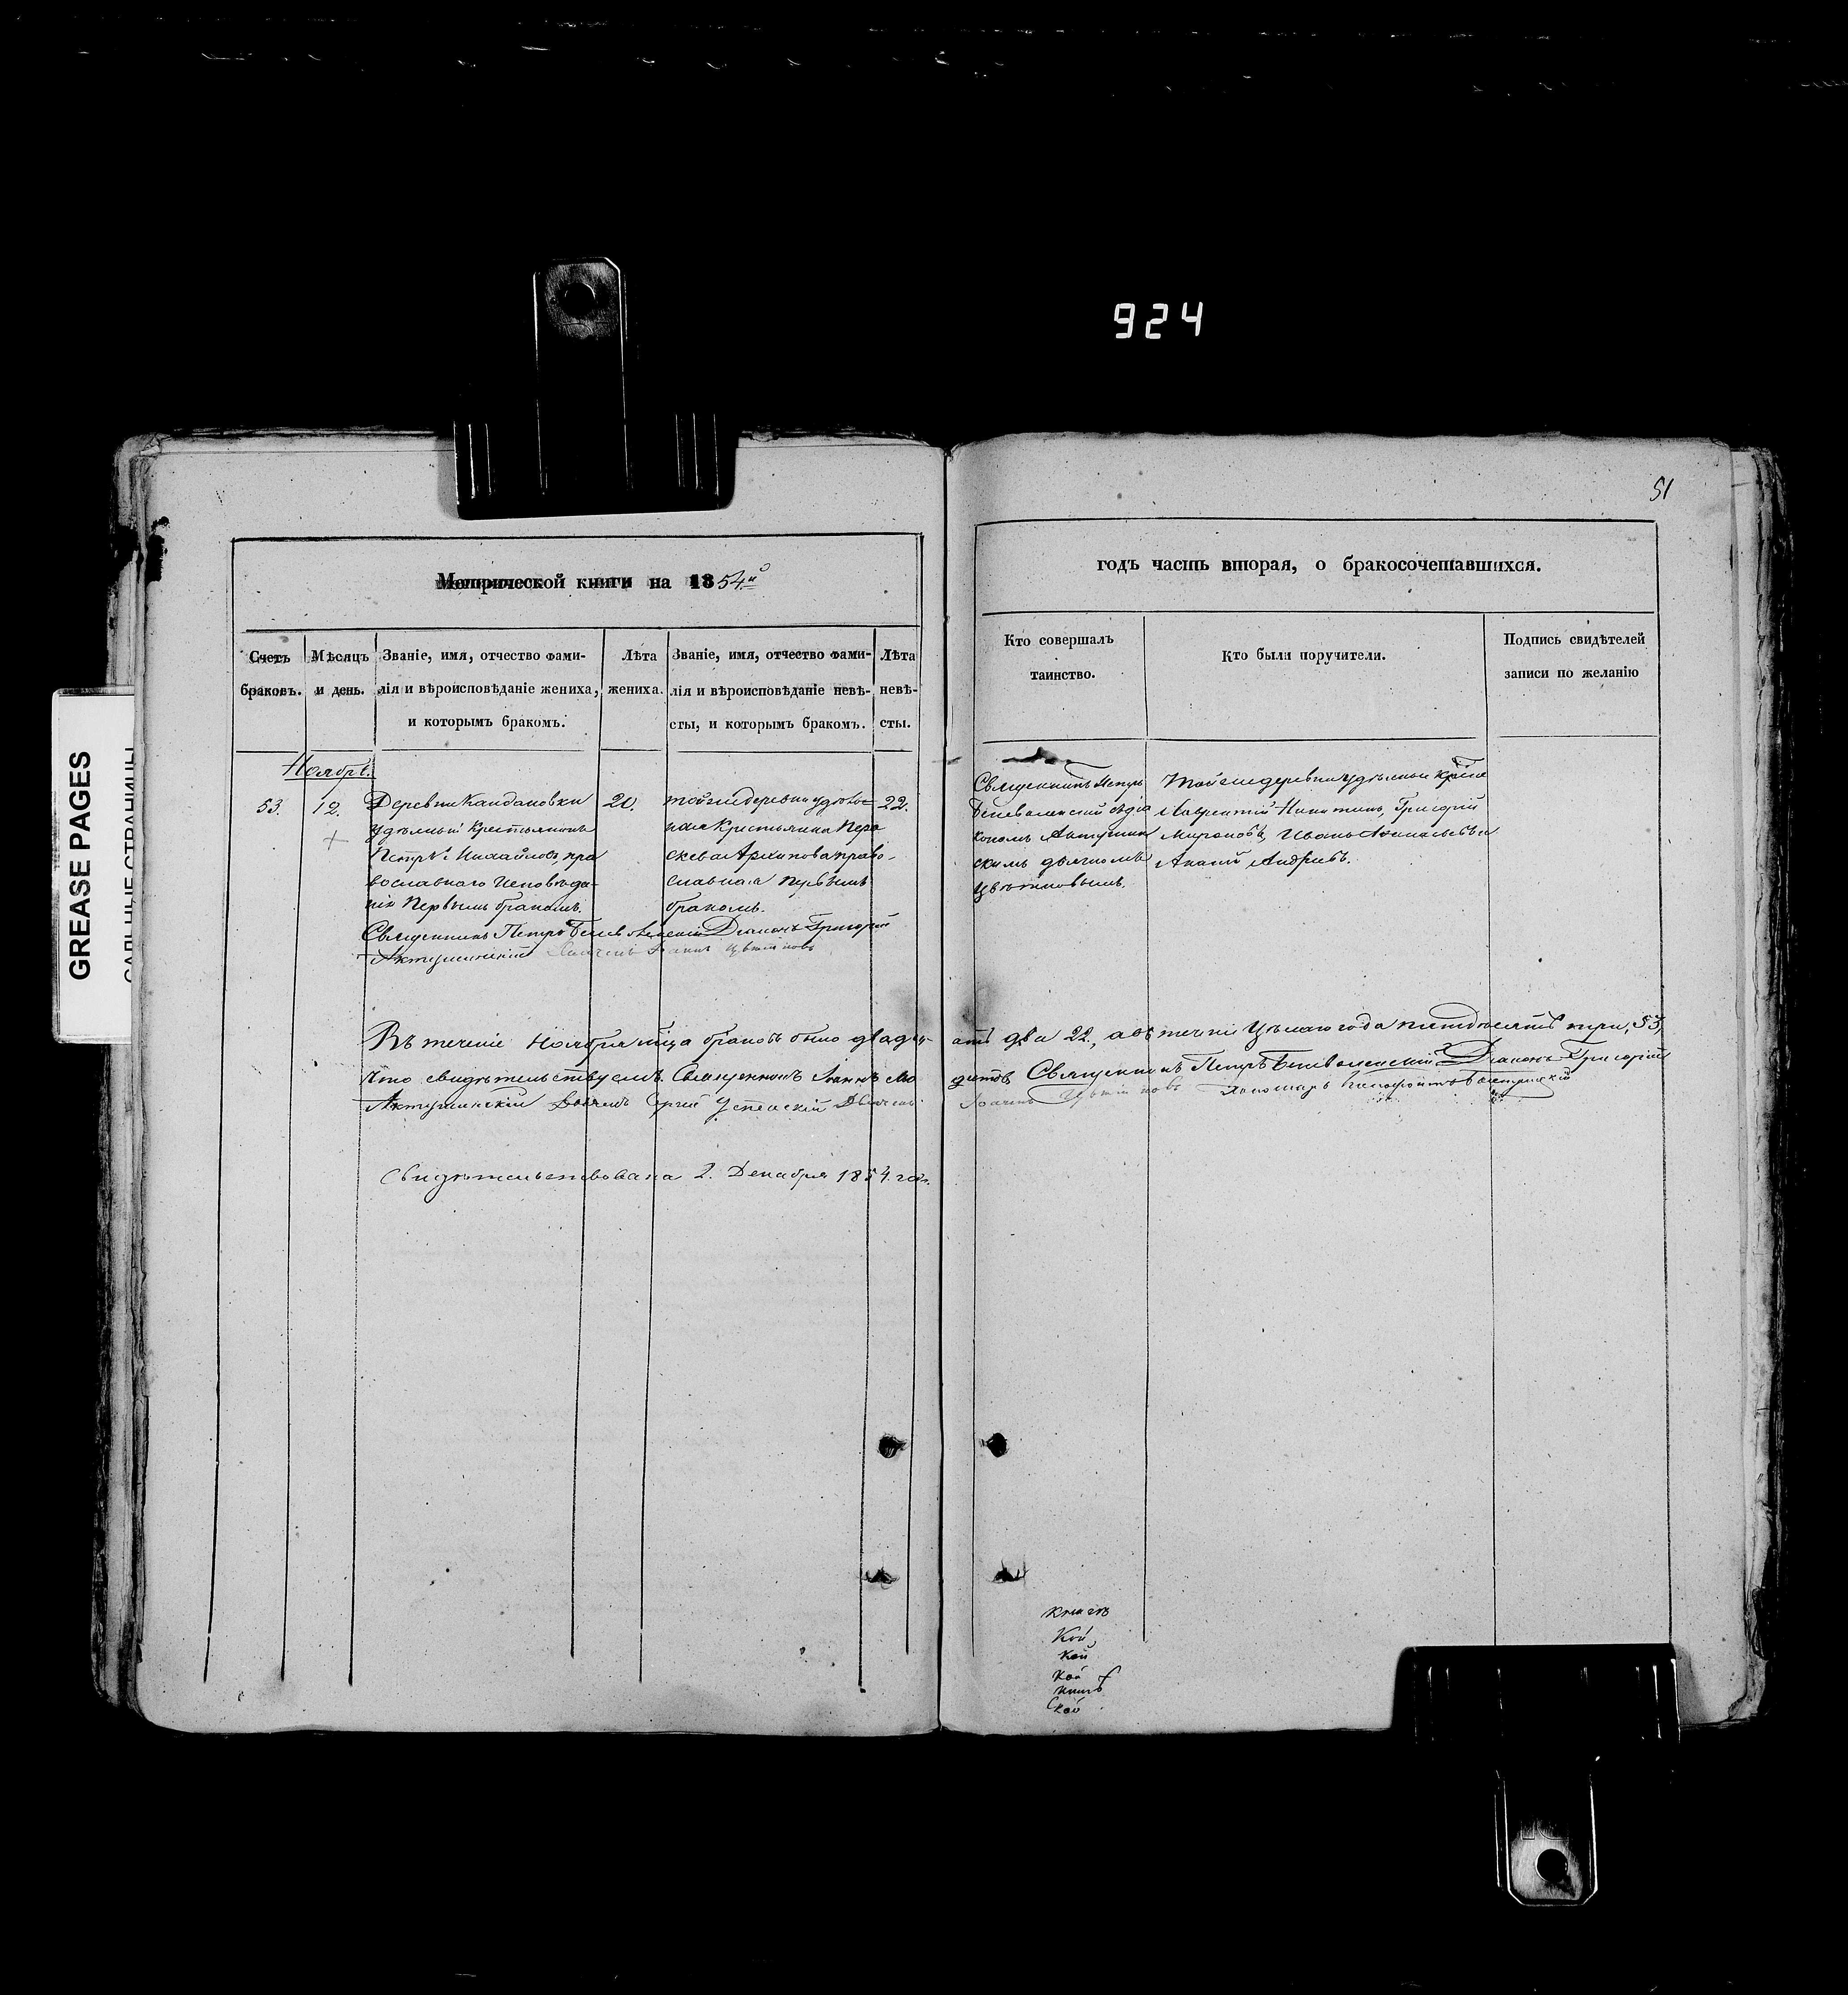 924
GREASE PAGES
САЛЬНЫЕ СТРАНИЦЫ
51
Метрической книги на 1854й
годъ часть вторая, о бракосочетавшихся.
Счетъ браковъ.
Мѣсяцъ и день.
Званіе, имя, отчество фами-
лія и вѣроисповѣданіе жениха,
и которымъ бракомъ.
Лѣта
жениха.
Званіе, имя, отчество фами-
лія и вѣроисповѣданіе невѣ-
сты, и которымъ бракомъ.
Лѣта
невѣ-
сты.
Кто совершалъ
таинство.
Кто были поручители.
Подпись свидѣтелей
записи по желанію
Ноябрь.
53.
12.
Деревни Кандаковки
удѣльный крестьянинъ
Петръ Михайловъ, пра
вославнаго исповѣда-
нія первымъ бракомъ.
20.
тойже деревни удѣль-
ная крестьянка Пара
скева Архипова право-
славная первымъ
бракомъ.
22.
Священникъ Петръ
съ діа
кономъ Актушин
скимъ дьячкомъ
Цвѣтковымъ.
тойже деревни удѣльные крѣне
Лаврентій Никитинъ, Григорій
Мироновъ, Иванъ и
Андреевъ.
Священникъ Петръ Діаконъ Григорій
Актушинскій
Въ теченіе Ноября мца браковъ было двадц-
ать два 22, а въ теченіе цѣлаго года пятдесятъ три, 53,
что свидѣтельствуемъ. Священникъ Іоаннъ
Священникъ Петръ Діаконъ Григорій
Актушинскій Дьячекъ Сергій Успенскій Дьячекъ
Цвѣтковъ Пономарь
Свидѣтельствована 2. Декабря 1854. года.
кой
кой
кой
ской